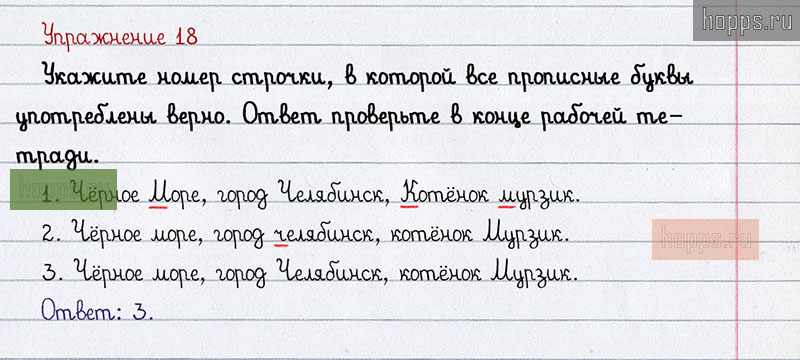 hopps.ru
Упражнение 18
Укажите номер строчки, в которой все прописные буквы
употреблены верно. Ответ проверьте в конце рабочей те-
тради.
hopps.ru
1. Чёрное Море, город Челябинск, Котёнок мурзик.
2. Чёрное море, город челябинск, котёнок Мурзик.
hopps.ru
3. Чёрное море, город Челябинск, котёнок Мурзик.
Ответ: 3.